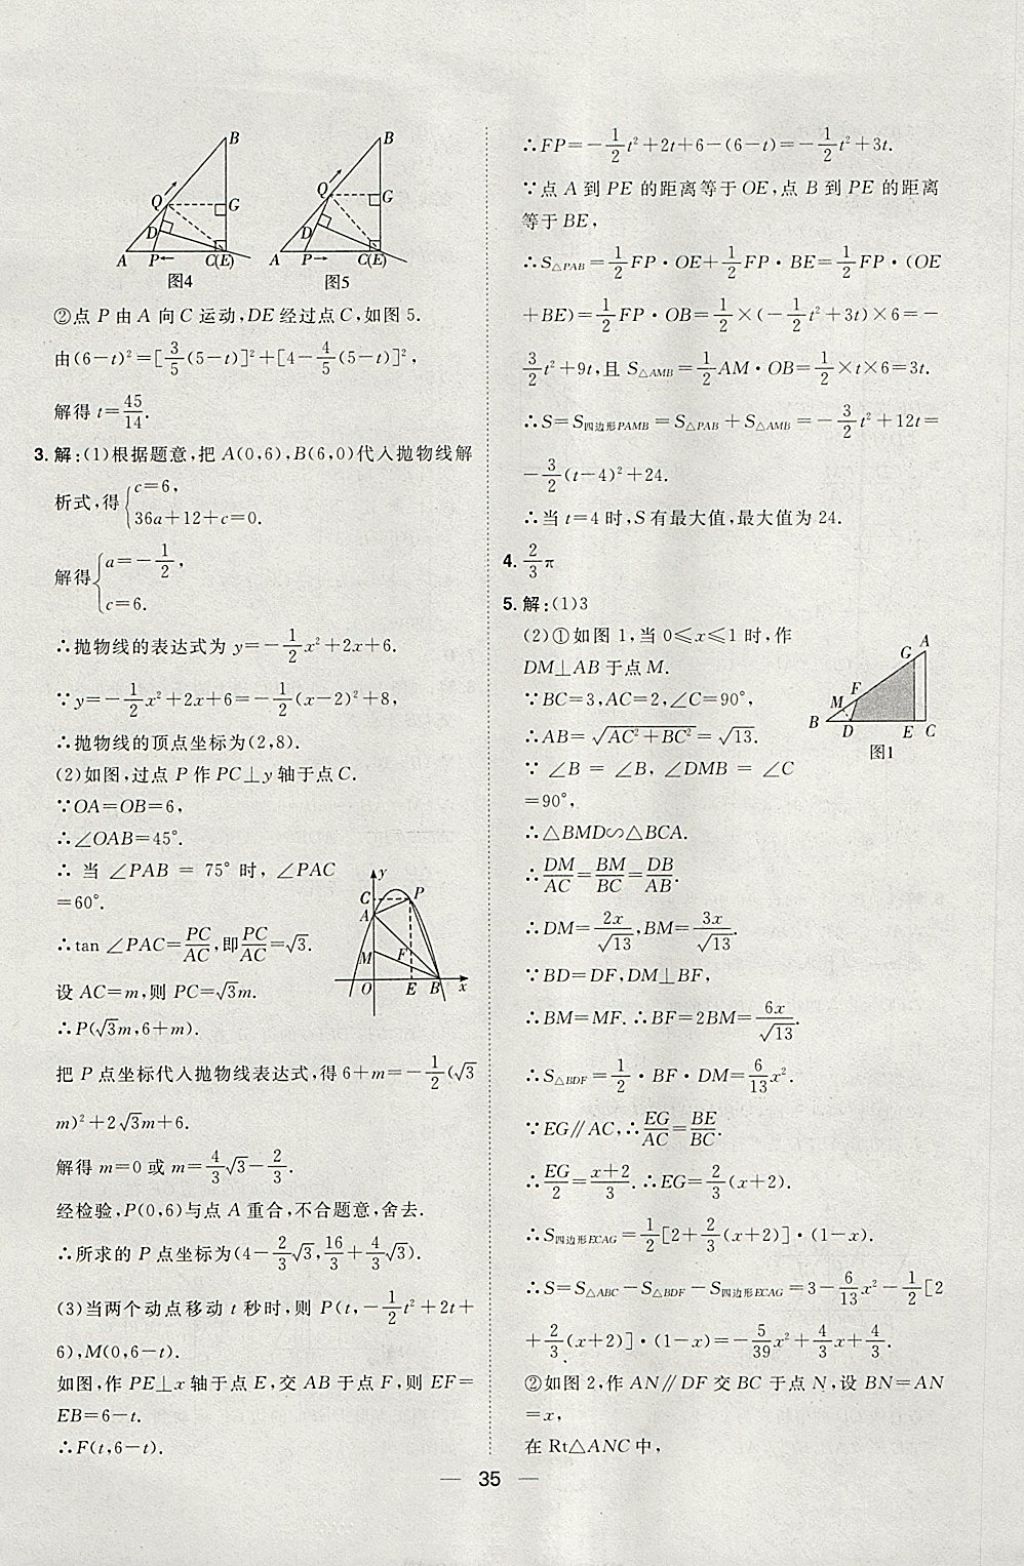 B
Q
G
D
A P← C(E)
图4
B
Q
G
D
A P→ C(E)
图5
②点 P 由 A 向 C 运动,DE 经过点 C,如图 5.
由(6-t)²=[3/5(5-t)]²+[4-4/5(5-t)]²,
解得 t=45/14.
3. 解:(1)根据题意,把 A(0,6),B(6,0)代入抛物线解
析式,得{c=6,
36a+12+c=0.
解得{a=-1/2,
c=6.
∴抛物线的表达式为 y=-1/2x²+2x+6.
∵y=-1/2x²+2x+6=-1/2(x-2)²+8,
∴抛物线的顶点坐标为(2,8).
(2)如图,过点 P 作 PC⊥y 轴于点 C.
∵OA=OB=6,
∴∠OAB=45°.
∴ 当 ∠PAB = 75° 时, ∠PAC
=60°.
∴tan ∠PAC=PC/AC,即PC/AC=√3.
设 AC=m,则 PC=√3m.
∴P(√3m,6+m).
y
C P
A
M F
O E B x
把 P 点坐标代入抛物线表达式,得 6+m=-1/2(√3
m)²+2√3m+6.
解得 m=0 或 m=4/3√3-2/3.
经检验,P(0,6)与点 A 重合,不合题意,舍去.
∴所求的 P 点坐标为(4-2/3√3,16/3+4/3√3).
(3)当两个动点移动 t 秒时,则 P(t,-1/2t²+2t+
6),M(0,6-t).
如图,作 PE⊥x 轴于点 E,交 AB 于点 F,则 EF=
EB=6-t.
∴F(t,6-t).
∴FP=-1/2t²+2t+6-(6-t)=-1/2t²+3t.
∵点 A 到 PE 的距离等于 OE,点 B 到 PE 的距离
等于 BE,
∴S△PAB=1/2FP·OE+1/2FP·BE=1/2FP·(OE
+BE)=1/2FP·OB=1/2×(-1/2t²+3t)×6=-
3/2t²+9t,且 S△AMB=1/2AM·OB=1/2×t×6=3t.
∴S=S四边形PAMB=S△PAB+S△AMB=-3/2t²+12t=
-3/2(t-4)²+24.
∴当 t=4 时,S 有最大值,最大值为 24.
4. 2/3π
5. 解:(1)3
(2)①如图 1,当 0≤x≤1 时,作
DM⊥AB 于点 M.
∵BC=3,AC=2,∠C=90°,
∴AB=√AC²+BC²=√13.
∵ ∠B = ∠B, ∠DMB = ∠C
=90°,
A
G
F
M
B D E C
图1
∴△BMD∽△BCA.
∴DM/AC=BM/BC=DB/AB.
∴DM=2x/√13,BM=3x/√13.
∵BD=DF,DM⊥BF,
∴BM=MF.∴BF=2BM=6x/√13.
∴S△BDF=1/2·BF·DM=6/13x².
∵EG∥AC,∴EG/AC=BE/BC.
∴EG/2=x+2/3.∴EG=2/3(x+2).
∴S四边形ECAG=1/2[2+2/3(x+2)]·(1-x).
∴S=S△ABC-S△BDF-S四边形ECAG=3-6/13x²-1/2[2
+2/3(x+2)]·(1-x)=-5/39x²+4/3x+4/3.
②如图 2,作 AN∥DF 交 BC 于点 N,设 BN=AN
=x,
在 Rt△ANC 中,
— 35 —